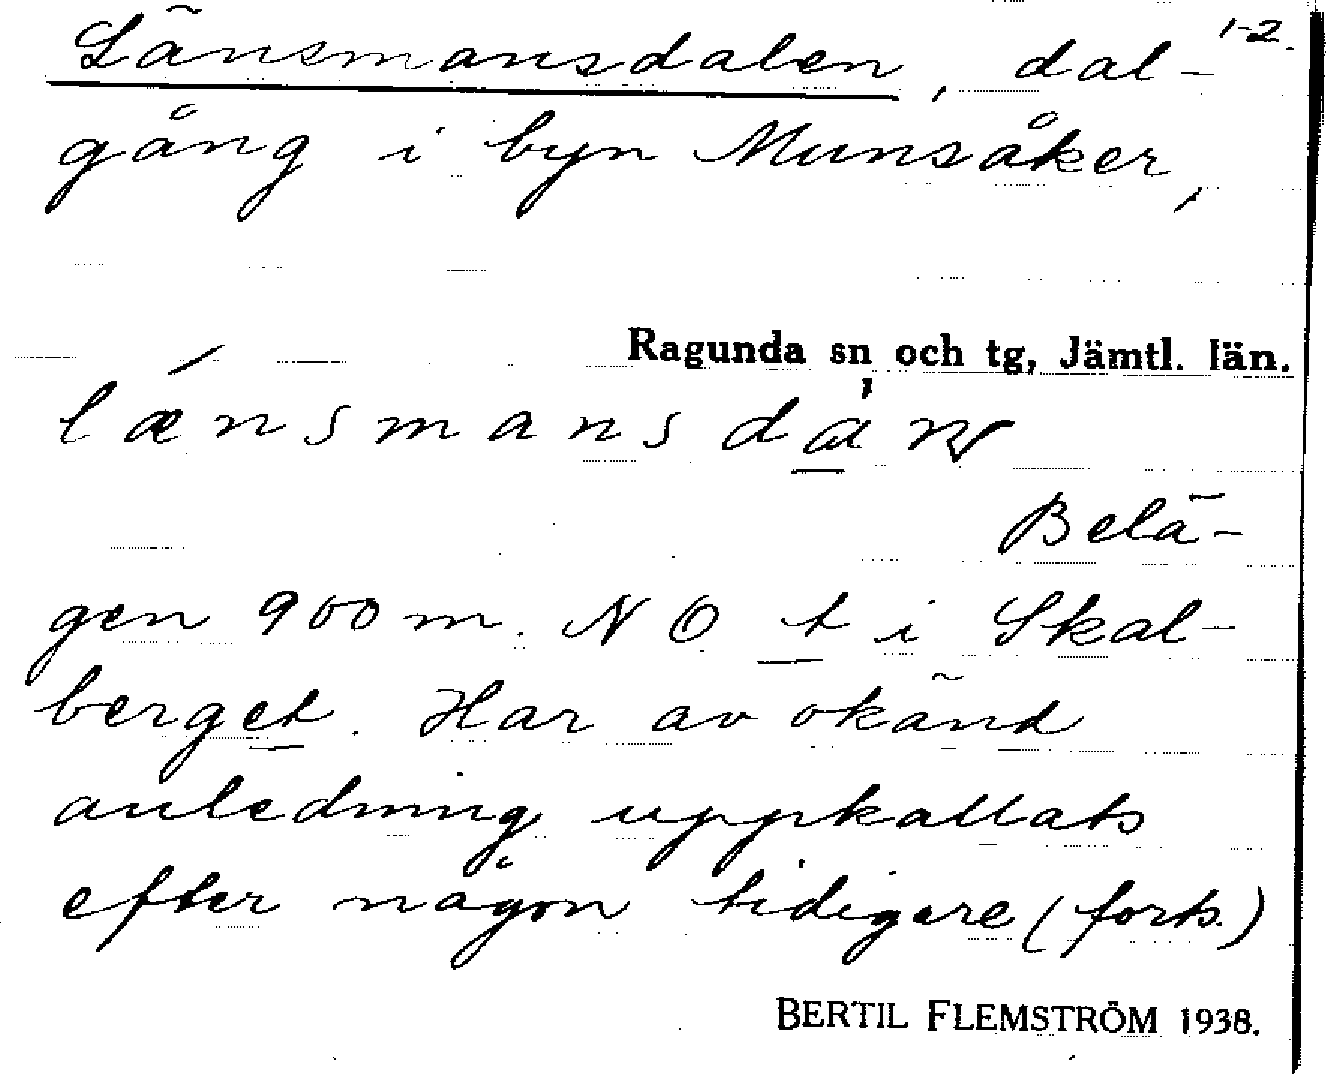 1-2.
Länsmansdalen, dal-
gång i byn Munsåker,
Ragunda sn och tg, Jämtl. län.
Belä-
gen 900 m. NO t i Skal-
berget. Har av okänd
anledning uppkallats
efter någon tidigare (forts.)
BERTIL FLEMSTRÖM 1938.